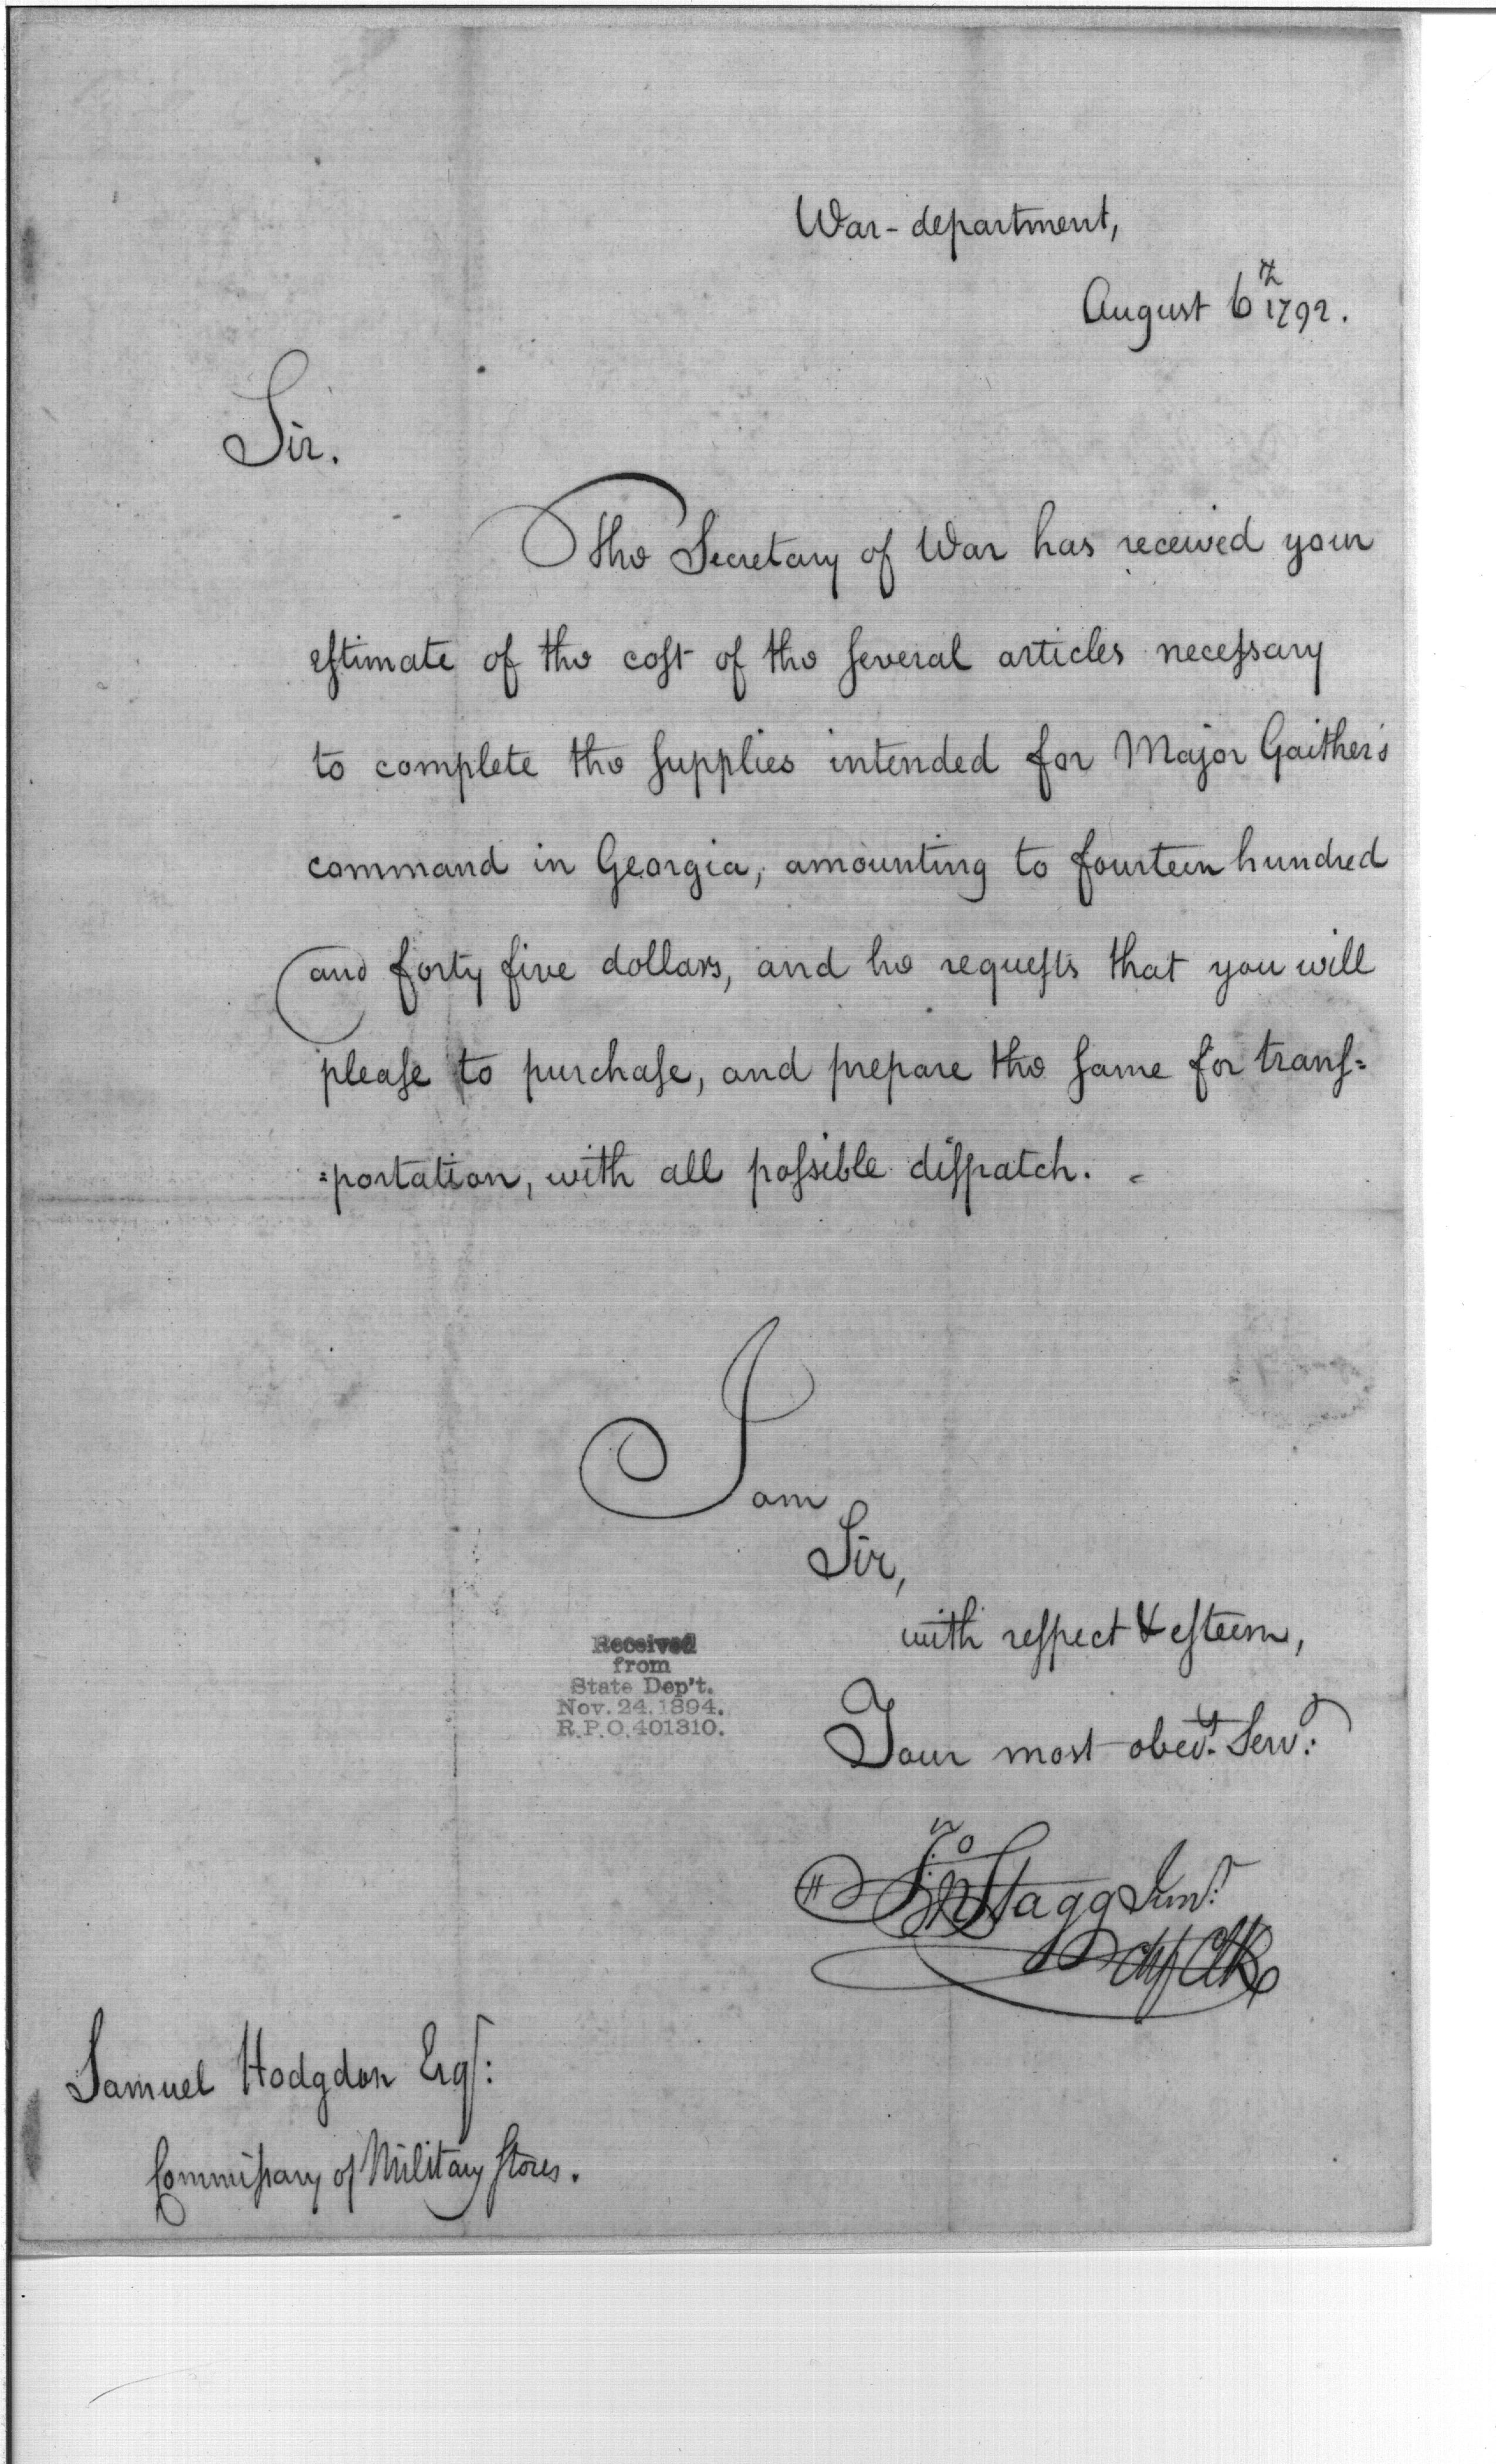 War-department,
August 6th 1792.
Sir.
The Secretary of War has received your
estimate of the cost of the several articles necessary
to complete the supplies intended for Major Gaither's
command in Georgia, amounting to fourteen hundred
and forty five dollars, and he requests that you will
please to purchase, and prepare the same for trans=
=portation, with all possible dispatch. -
I am
Sir,
with respect & esteem,
Your most obedt. Servt.
Jno Stagg Junr.
Chf Clk
Received
from
State Dep't.
Nov. 24. 1894.
R.P.O. 401310.
Samuel Hodgdon Esqr:
Commissary of Military Stores.